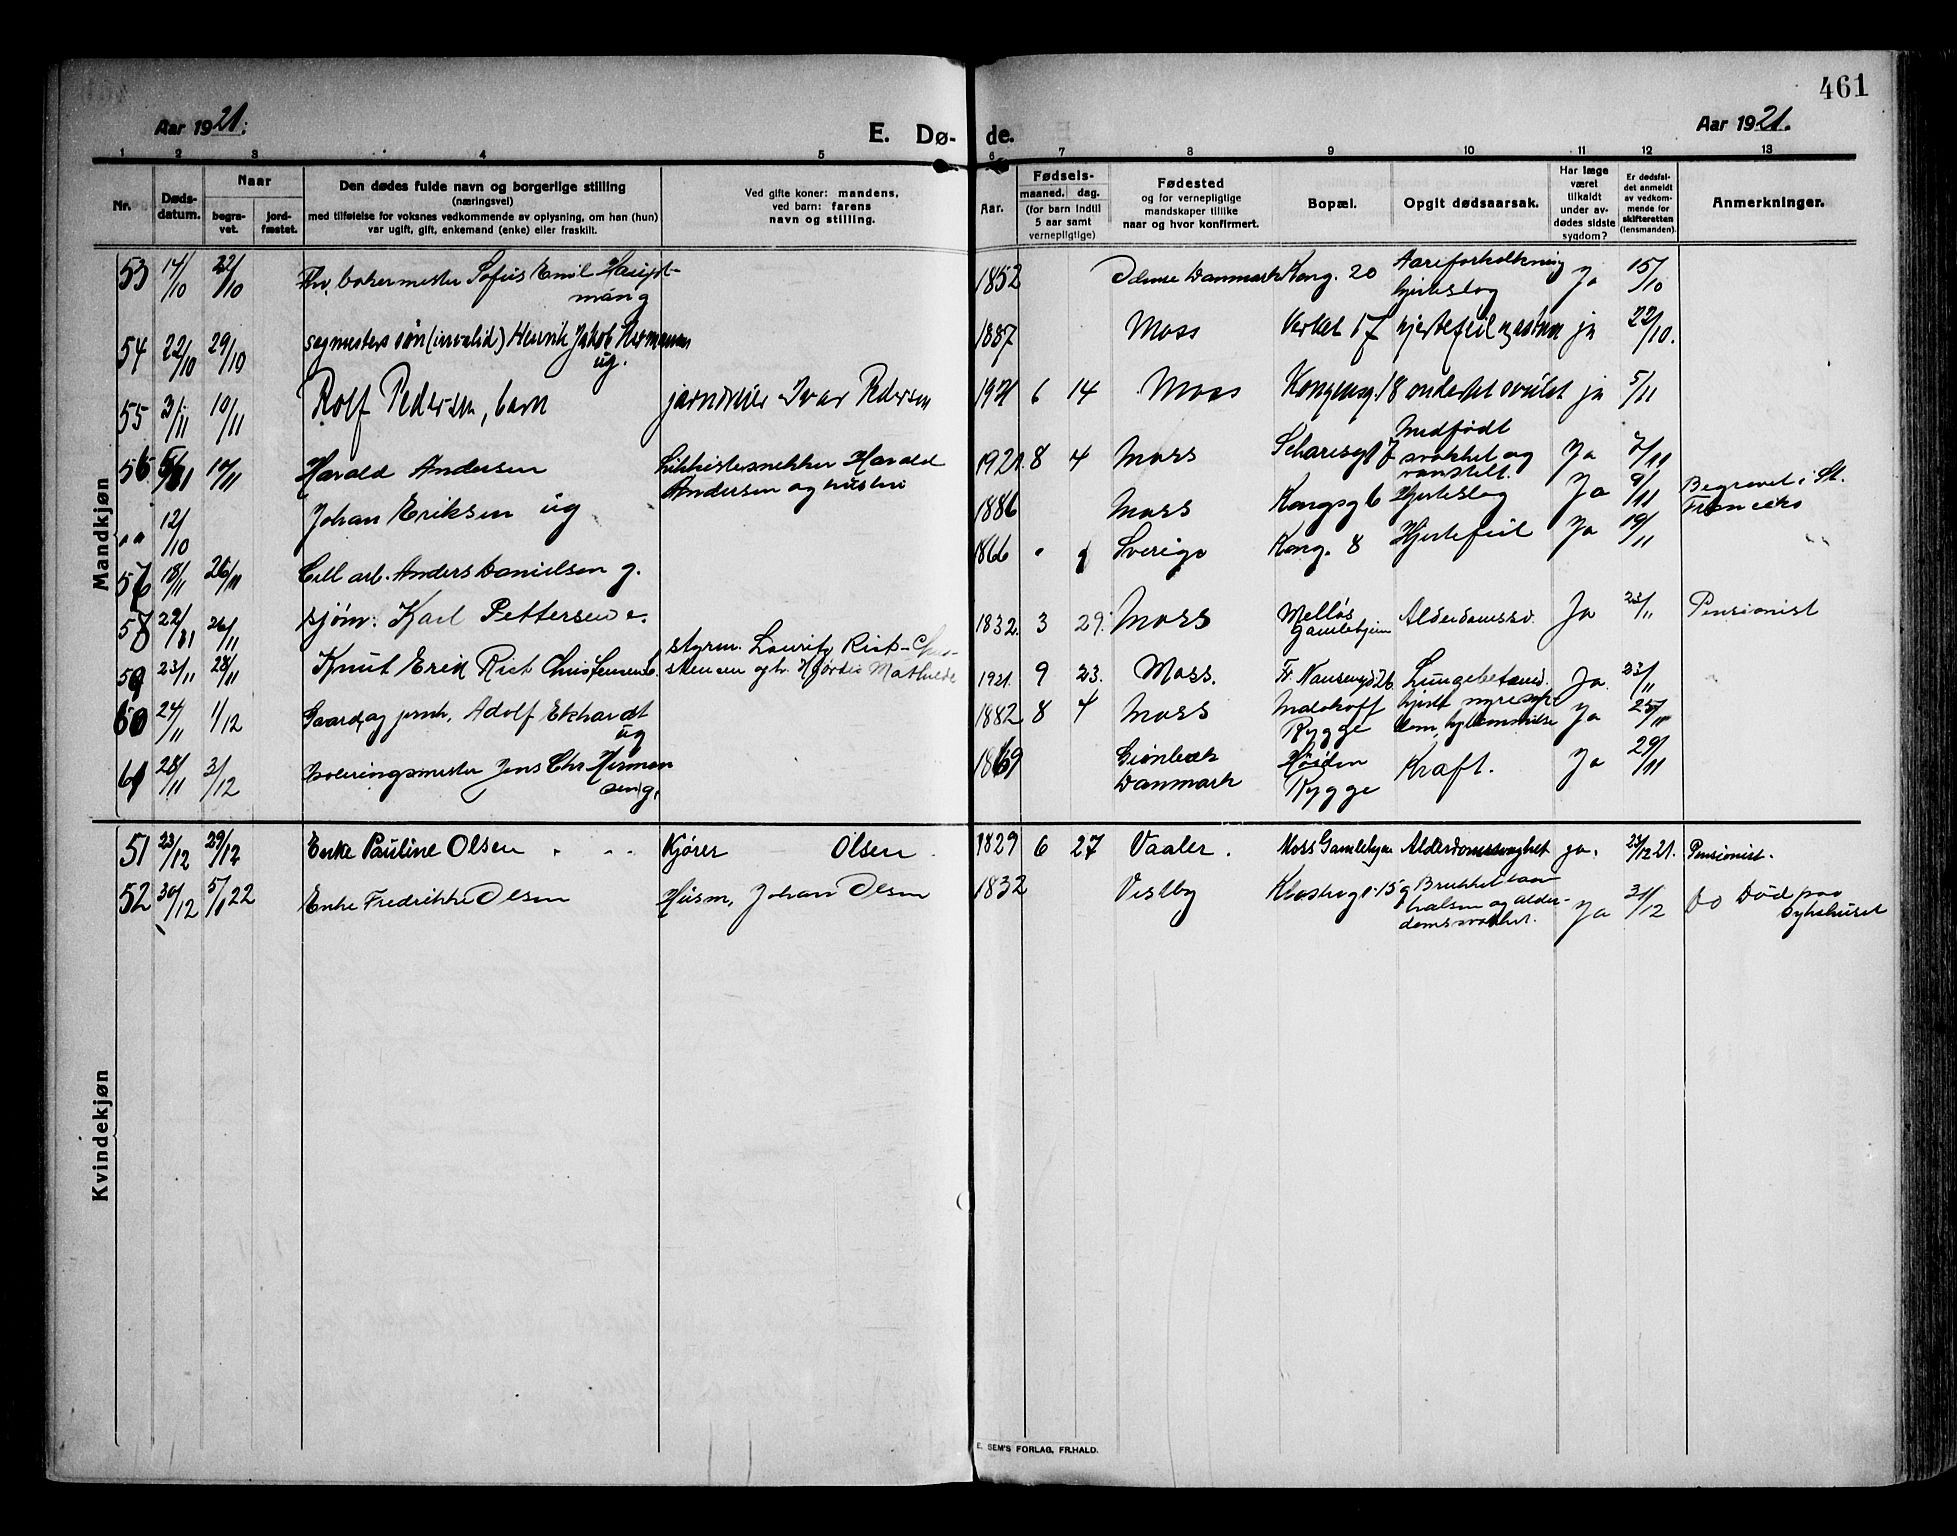 461
Aar 1921.
E. Dø-
de.
Aar 1921.
1 2 3 4 5 6 7 8 9 10 11 12 13
Nr.
Døds-
datum.
Naar
begra-
vet.
jord-
fæstet.
Den dødes fulde navn og borgerlige stilling
(næringsvei)
med tilføielse for voksnes vedkommende av oplysning, om han (hun)
var ugift, gift, enkemand (enke) eller fraskilt.
Ved gifte koner: mandens,
ved barn: farens
navn og stilling.
Aar.
Fødsels-
maaned. dag.
(for barn indtil
5 aar samt
vernepligtige)
Fødested
og for vernepligtige
mandskaper tillike
naar og hvor konfirmert.
Bopæl.
Opgit dødsaarsak.
Har læge
været
tilkaldt
under av-
dødes sidste
sygdom?
Er dødsfal-
det anmeldt
av vedkom-
mende for
skifteretten
(lensmanden).
Anmerkninger.
Mandkjøn
53 14/10 22/10 Sofus Emil
1852 Odense Danmark Kong. 20 Aareforkalkning
hjerteslag
Ja 15/10
54 22/10 29/10 søn (invalid) Henrik Jakob Hermansen
ug.
1887 Moss Verket 17 hjertefeil ja 22/10.
55 3/11 10/11 Rolf Pedersen, barn Ivar Pedersen
1921 6 14 Moss Kongensg. 18 ondartet svulst ja 5/11
56 Harald Andersen Likkistesnekker Harald
Andersen og hustru
1921. 8 4 Moss Medfødt
svakhet og
vanstelt.
Ja 7/11
" 12/10 Johan Eriksen ug
1886 Moss Kongsg 6 Hjerteslag Ja 9/11 Begravet i St.
57 18/11 26/11 Cell. arb. Anders Danielsen g.
1866 Sverige Kong. 8 Hjertefeil Ja 19/11
58 22/11 26/11 sjøm. Karl Pettersen e.
1832. 3 29. Moss Melløs
Gamlehjem
Ja 23/11 Pensionist
59 23/11 28/11 Knut Erik Rist Christensen b.
styrm. Lauritz Rist-Chri-
stensen og h. Hjørdis Mathilde
1921. 9 23. Moss. Fr. Nansensg 26 Lungebetænd. Ja. 23/11
60 24/11 1/12 Adolf Ekhardt
ug
1882 8 4 Moss
Rygge
Ja 25/11
61 28/11 3/12 Isoleringsmester Jens Chr. Herman
sen g.
1869
Danmark
Rygge
Kræft. Ja 29/11
Kvindekjøn
51 23/12 29/12 Enke Pauline Olsen Kjører Olsen
1829 6 27 Vaaler. Moss Gamlehjem Alderdomssvaghet ja. 23/12 21. Pensionist.
52 30/12 5/1 22 Enke Fredrikke Olsen Husm. Johan Olsen
1832 Vestby Brukket laar
halsen og alder-
domssvakhet.
Ja 31/12 Do Død paa
Sykehuset
E. SEM'S FORLAG, FR.HALD.